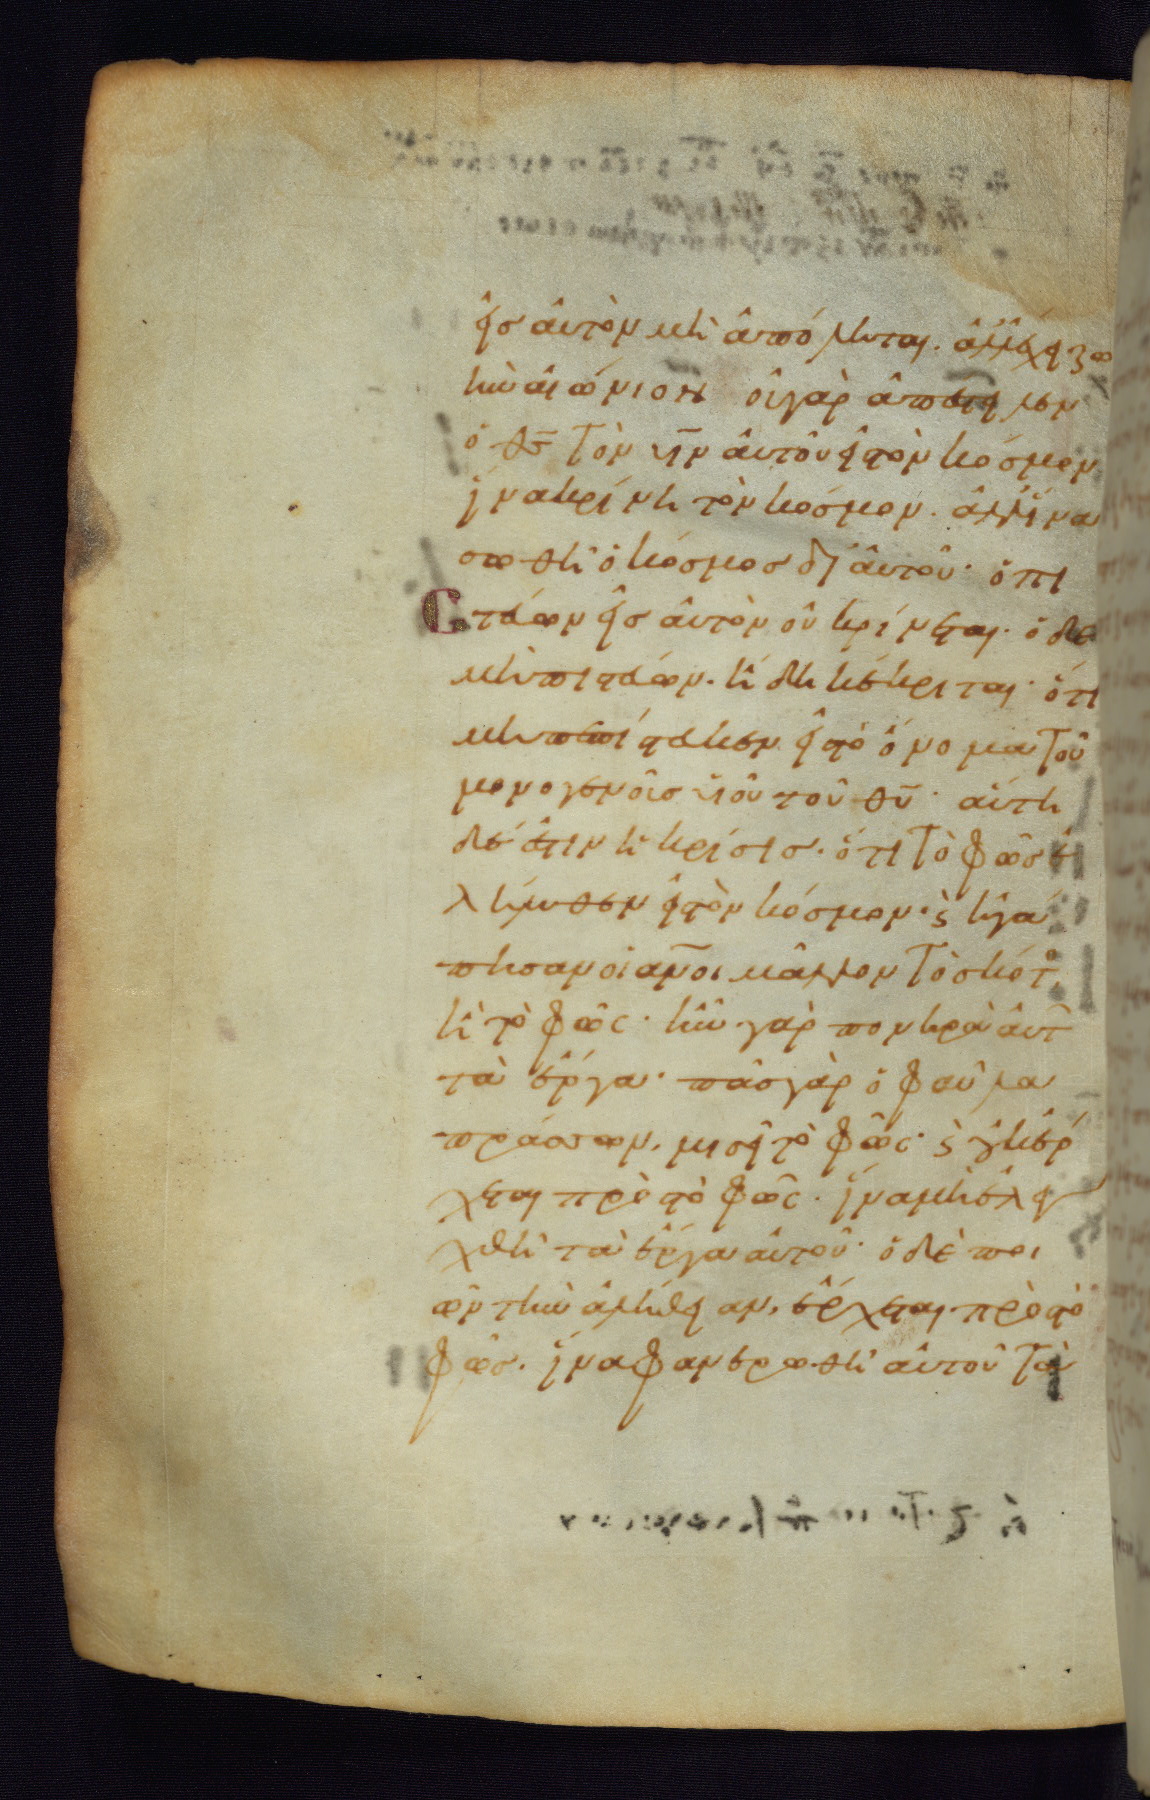 εἰς αὐτὸν μὴ ἀπόληται. ἀλλ' ἔχει ζω
ὴν αἰώνιον οὐ γὰρ ἀπέστειλεν
ὁ θς τὸν υν αὐτοῦ εἰς τὸν κόσμον
ἵνα κρίνη τὸν κόσμον. ἀλλ' ἵνα
σωθῆ ὁ κόσμος δι' αὐτοῦ· ὁ πι
στεύων εἰς αὐτὸν οὐ κρίνεται· ὁ δὲ
μὴ πιστεύων. ἤδη κέκριται· ὅτι
μὴ πεπίστευκεν εἰς τὸ ὄνομα τοῦ
μονογενοῦς υἱοῦ τοῦ θυ· αὕτη
δέ ἐστιν ἡ κρίσις. ὅτι τὸ φῶς ἐ
λήλυθεν εἰς τὸν κόσμον· ϗ ἠγά
πησαν οἱ ανοι μᾶλλον τὸ σκότος
ἢ τὸ φῶς· ἦν γὰρ πονηρὰ αὐτ
τὰ ἔργα· πᾶς γὰρ ὁ φαῦλα
πράσσων, μισεῖ τὸ φῶς· ϗ οὐκ ἔρ
χεται πρὸς τὸ φῶς. ἵνα μὴ ἐλεγ
χθῆ τὰ ἔργα αὐτοῦ· ὁ δὲ ποι
ῶν τὴν ἀλήθειαν, ἔρχεται πρὸς τὸ
φῶς. ἵνα φανερωθῆ αὐτοῦ τὰ